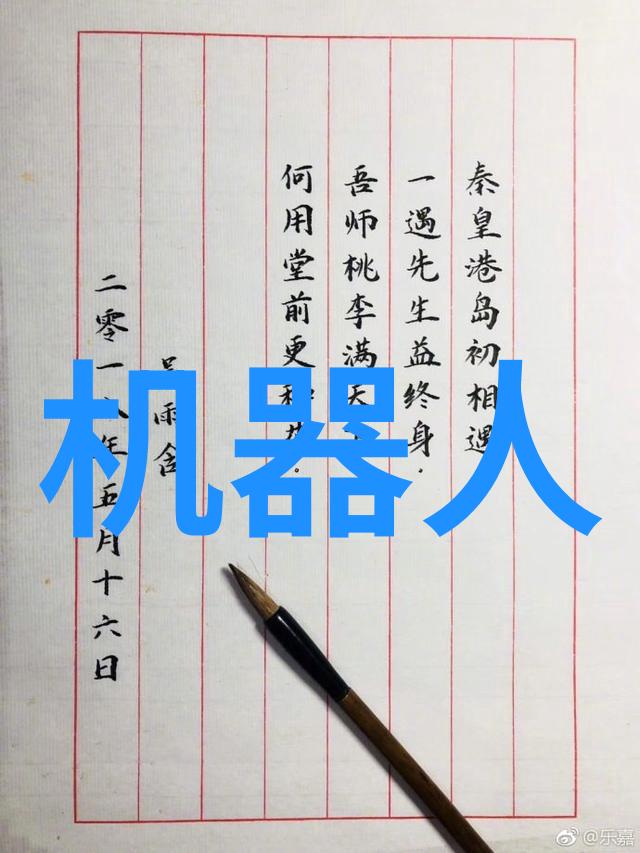 秦皇港岛初相遇
一遇先生益终身.
吾师桃李满天
何用堂前更
雨含
二零一八年五月十六日
机器人
@乐嘉